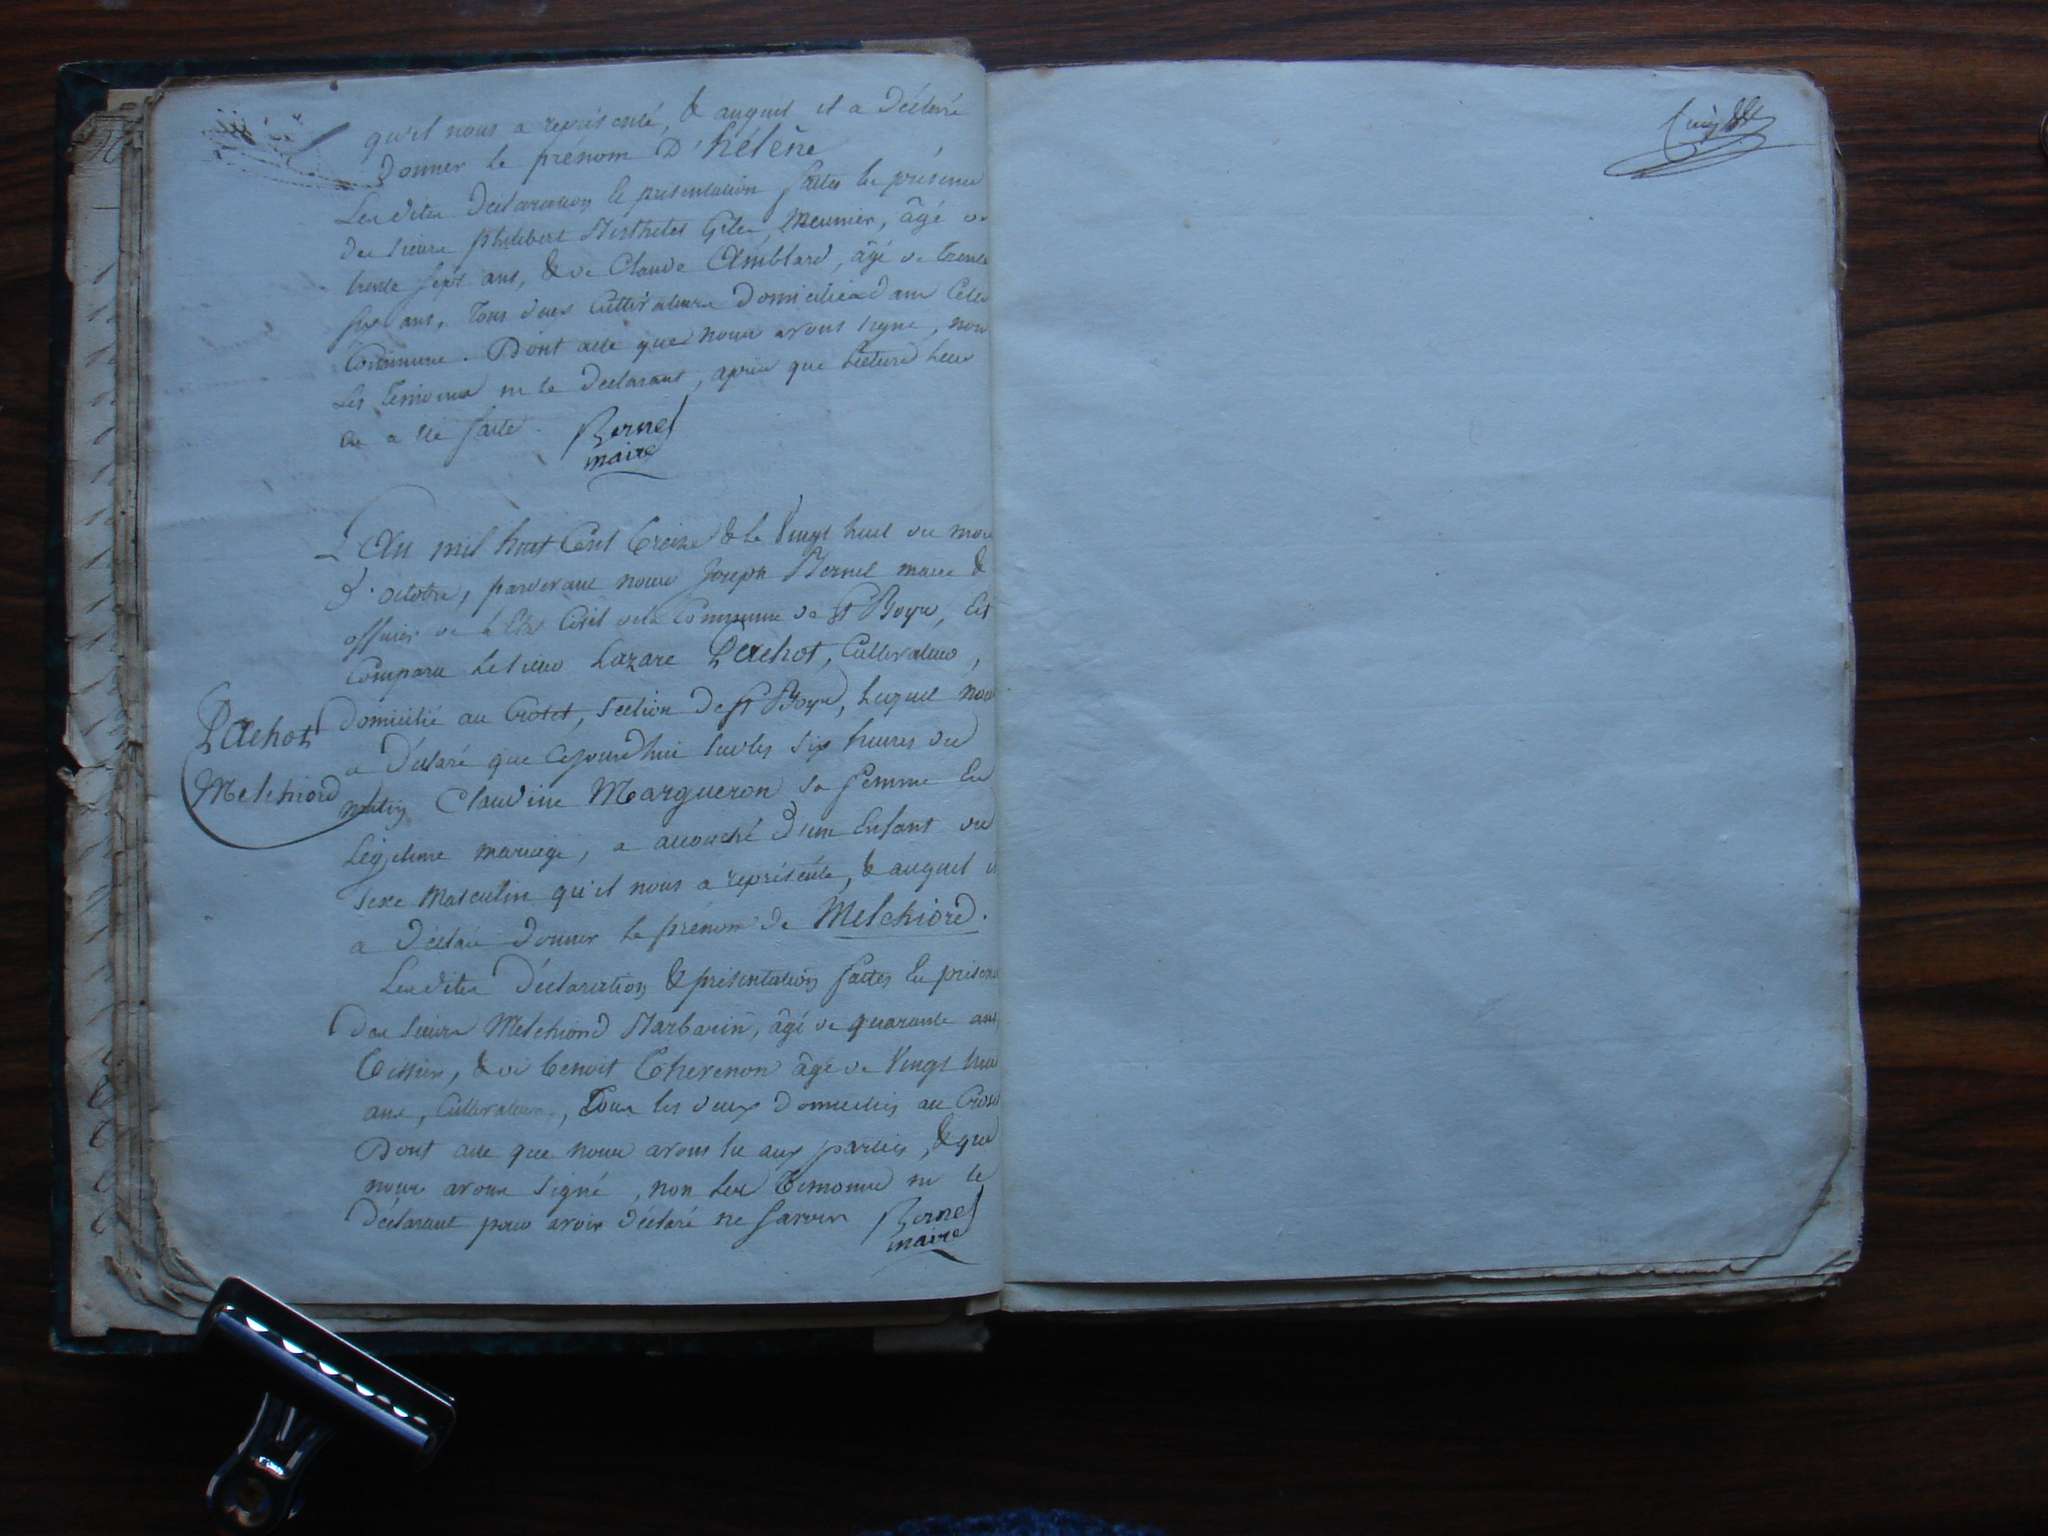 qu'il nous a représenté, & auquel il a déclaré
donner le prénom D'hélène
Les dites Déclaration & présentation faites En présence
des sieurs philibert Meunier, âgé de
trente sept ans, & de Claude Amblard, âgé de trente
six ans, tous deux Cultivateurs Domiciliés dans Cette
Commune. Dont acte que nous avons signé, non
Les témoins ni le déclarant, après que Lecture Leur
en a été faite.
Bernel
maire
L'An mil huit Cent treize & le Vingt huit du mois
d'octobre, pardevant nous Joseph Bernel maire &
officier de l'état Civil de la Commune de St Boyr, Est
Comparu Le sieur Lazare Pachot, Cultivateur,
domicilié au Crotet, section de St Boyr, Lequel nous
a Déclaré que Cejourd'hui sur les six heures du
matin Claudine Margueron sa femme En
Légitime mariage, a accouché d'un Enfant du
sexe Masculin qu'il nous a représenté, & auquel il
a déclaré donner le prénom de Melchiord.
Les dites Déclaration & présentation faites En présence
des sieurs Melchiord Barbarin, âgé de quarante ans,
tissier, & de benoit Thevenon âgé de Vingt huit
ans, Cultivateur, tous les deux domiciliés au Crotet
Dont acte que nous avons lu aux parties, & que
nous avons signé, non Les témoins ni le
déclarant pour avoir déclaré ne savoir
Bernel
maire
Pachot
Melchiord